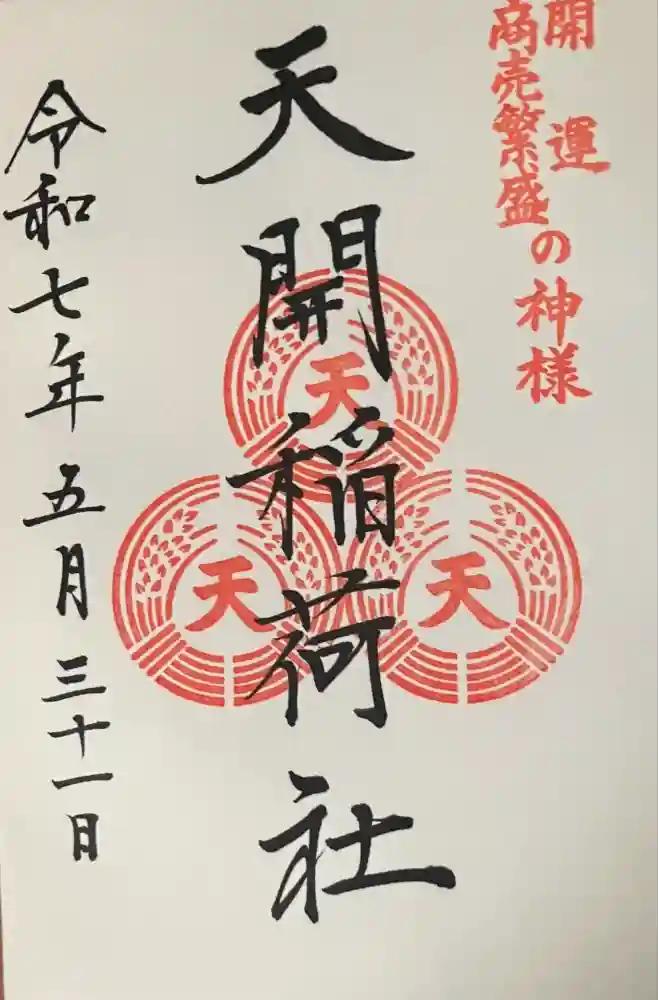 開運
商売繁盛
の神様
天開稲荷社
天
天
天
令和七年五月三十一日